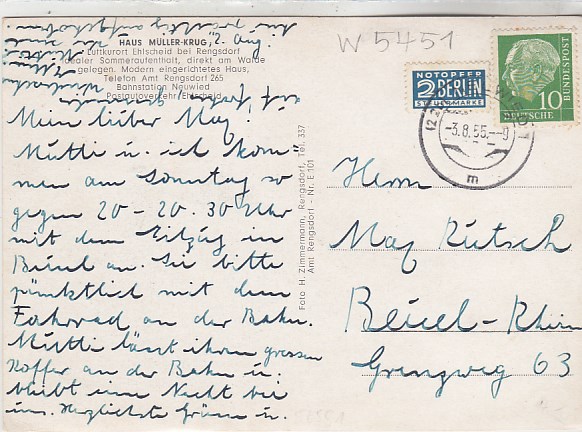 HAUS MÜLLER-KRUG, 2. Aug.
Luftkurort Ehlscheid bei Rengsdorf
idealer Sommeraufenthalt, direkt am Walde
gelegen. Modern eingerichtetes Haus,
Telefon Amt Rengsdorf 265
Bahnstation Neuwied
Postautoverkehr Ehlscheid
Mein lieber Max!
Mutti u. ich kom-
men am Sonntag so
gegen 20 - 20.30 Uhr
mit dem Eilzug in
Beuel an. Sei bitte
pünktlich mit dem
Fahrrad an der Bahn.
Mutti lässt ihren grossen
Koffer an der Bahn u.
bleibt eine Nacht bei
uns. Herzlichste Grüsse u.
Foto H. Zimmermann, Rengsdorf, Tel. 337
Amt Rengsdorf - Nr. E 101
W 5451
NOTOPFER
2 BERLIN
STEUERMARKE
DEUTSCHE BUNDESPOST
10
-3.8.55.--9
m
Herrn
Max Rütsch
Beuel-Rhein
Grenzweg 63